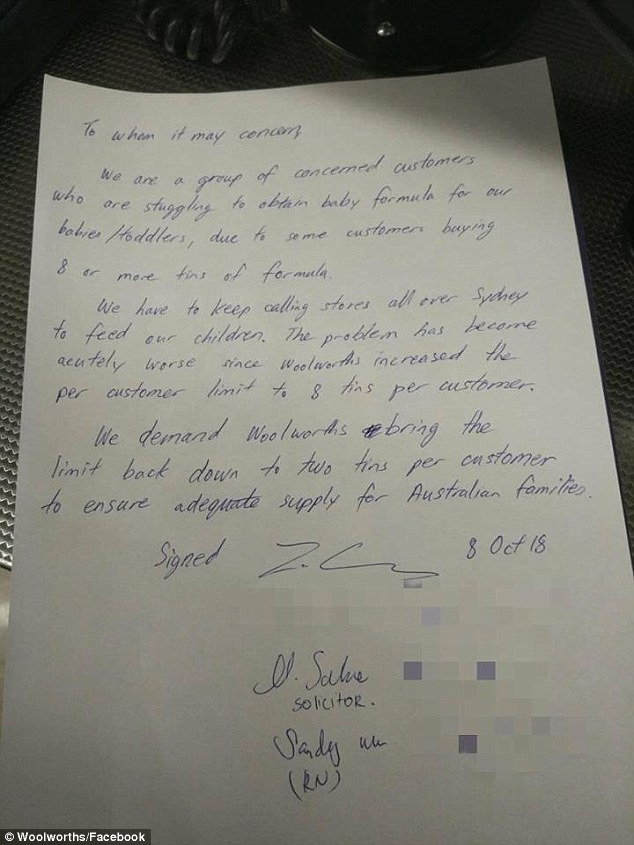 To whom it may concern,
We are a group of concerned customers
who are stuggling to obtain baby formula for our
babies/toddlers, due to some customers buying
8 or more tins of formula.
We have to keep calling stores all over Sydney
to feed our children. The problem has become
acutely worse since Woolworths increased the
per customer limit to 8 tins per customer.
We demand Woolworths bring the
limit back down to two tins per customer
to ensure adequate supply for Australian families.
Signed 8 Oct 18
solicitor.
Sandy
(RN)
© Woolworths/Facebook